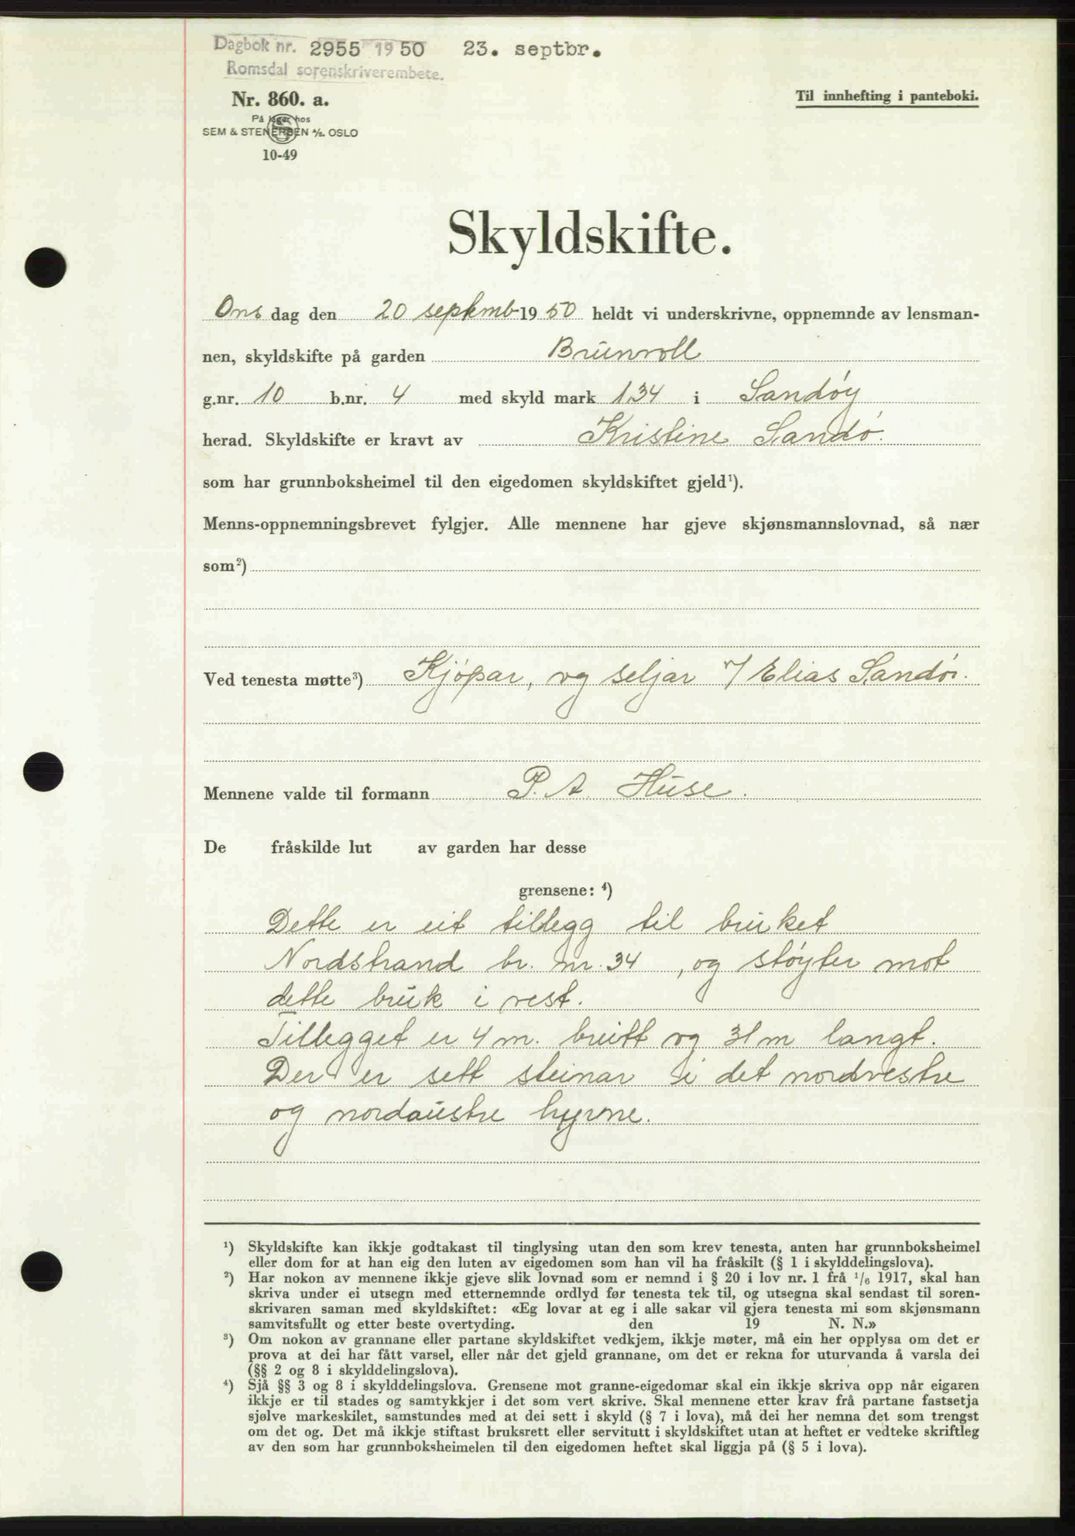 Dagbok nr. 2955 1950 23. septbr.
Romsdal sorenskriverembete.
Nr. 860. a.
Til innhefting i panteboki.
På lager hos
SEM & STENERSEN A/S. OSLO
10-49
Skyldskifte.
Ons dag den 20 septemb 19 50 heldt vi underskrivne, oppnemnde av lensman-
nen, skyldskifte på garden Brunvoll
g.nr. 10 b.nr. 4 med skyld mark 1.34 i Sandøy
herad. Skyldskifte er kravt av Kristine Sandø.
som har grunnboksheimel til den eigedomen skyldskiftet gjeld¹).
Menns-oppnemningsbrevet fylgjer. Alle mennene har gjeve skjønsmannslovnad, så nær
som²)
Ved tenesta møtte³) Kjøpar, og seljar v/ Elias Sandøi.
Mennene valde til formann P. A. Huse.
De fråskilde lut av garden har desse
grensene: ⁴)
Dette er eit tillegg til bruket
Nordstrand br. nr. 34, og støyter mot
dette bruk i vest.
Tillegget er 4 m. breitt og 31 m langt.
Der er sett steinar i det nordvestre
og nordaustre hyrne.
¹) Skyldskifte kan ikkje godtakast til tinglysing utan den som krev tenesta, anten har grunnboksheimel
eller dom for at han eig den luten av eigedomen som han vil ha fråskilt (§ 1 i skylddelingslova).
²) Har nokon av mennene ikkje gjeve slik lovnad som er nemnd i § 20 i lov nr. 1 frå ¹/₆ 1917, skal han
skriva under ei utsegn med etternemnde ordlyd før tenesta tek til, og utsegna skal sendast til soren-
skrivaren saman med skyldskiftet: «Eg lovar at eg i alle sakar vil gjera tenesta mi som skjønsmann
samvitsfullt og etter beste overtyding. den 19 N. N.»
³) Om nokon av grannane eller partane skyldskiftet vedkjem, ikkje møter, må ein her opplysa om det er
prova at dei har fått varsel, eller når det gjeld grannane, om det er rekna for uturvanda å varsla dei
(§§ 2 og 8 i skylddelingslova).
⁴) Sjå §§ 3 og 8 i skylddelingslova. Grensene mot granne-eigedomar skal ein ikkje skriva opp når eigaren
ikkje er til stades og samtykkjer i det som vert skrive. Skal mennene etter krav frå partane fastsetja
sjølve markeskilet, samstundes med at dei sett i skyld (§ 7 i lova), må dei her nemna det som trengst
om det og. Det må ikkje stiftast bruksrett eller servitutt i skyldskiftet utan at heftet er vedteke skriftleg
av den som har grunnboksheimelen til den eigedomen heftet skal liggja på (§ 5 i lova).